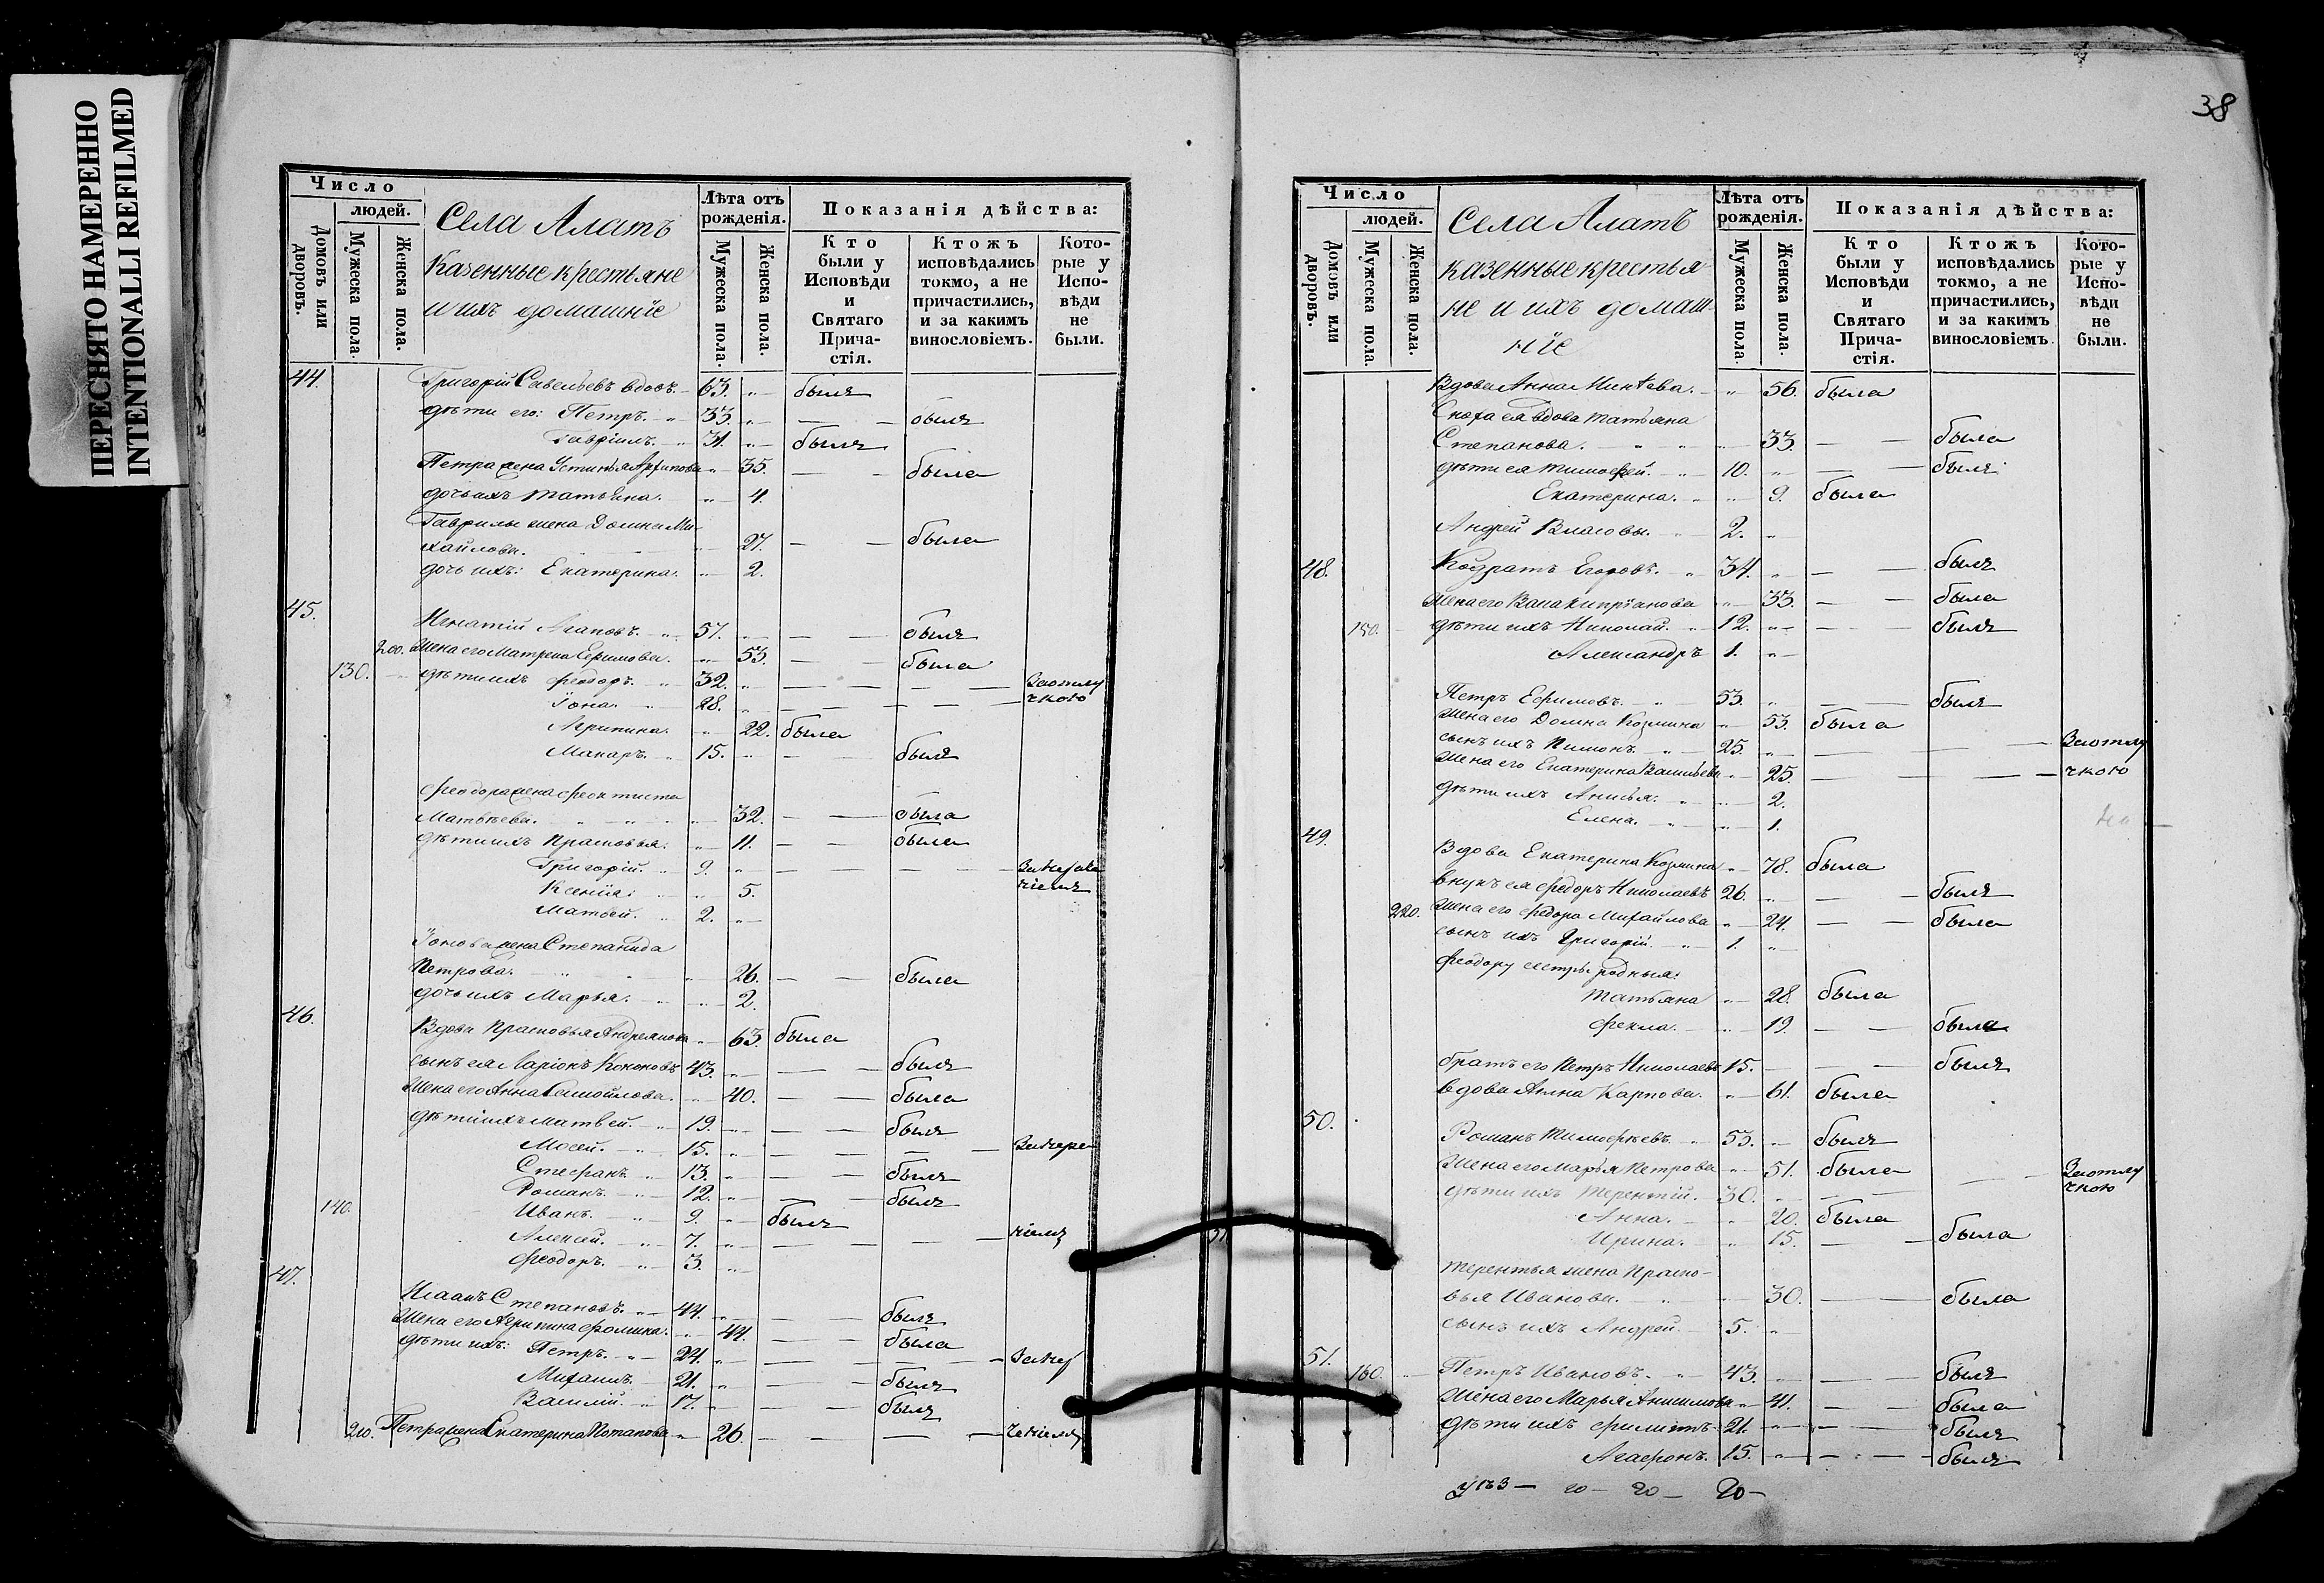 ПЕРЕСНЯТО НАМЕРЕННО
INTENTIONALLI REFILMED
Число
людей.
Домовъ или дворовъ.
Мужеска пола.
Женска пола.
Села Алатъ
Казенные крестьяне
и ихъ домашніе
Лѣта отъ рожденія.
Мужеска пола.
Женска пола.
Показанія дѣйства:
Кто были у Исповѣди и Святаго Прича-стія.
Ктожъ исповѣдались токмо, а не причастились, и за какимъ винословіемъ.
Кото-рые у Испо-вѣди не были.
44. Григорій Савельевъ вдовъ. 63. „ былъ
дѣти его: Петръ. 33. „ — — былъ
Гавріилъ. 31. „ былъ
Петра жена Устинья Архипова „ 35. — — была
дочь ихъ Татьяна. „ 4.
Гаврилы жена Домна Ми-
хайлова. „ 27. — — была
дочь ихъ: Екатерина. „ 2.
45. Игнатій Агаповъ. 57. „ — — былъ
200. Жена его Матрена Ефимова. „ 53. — — была
130. дѣти ихъ Феодоръ. 32. „ — — — — За отлу
Іона. 28. „ — — — — чкою
Агрипина. „ 22. была
Макаръ. 15. „ — — былъ
Феодора жена Феоктиста
Матвѣева. „ 32. — — была
дѣти ихъ Прасковья. „ 11. — — была
Григорій. 9. „ — — — —
Ксенія. „ 5.
Матвей. 2. „
Іонова жена Степанида
Петрова. „ 26. — — была
дочь ихъ Марья. „ 2.
46. Вдова Прасковья Андреянова „ 63. была
сынъ ея Ларіонъ Кононовъ 43. „ — — былъ
Жена его Анна Самойлова. „ 40. — — была
дѣти ихъ Матвей. 19. „ — — былъ
Мосей. 15. „ — — — — За нере
Стефанъ 13. „ — — былъ
Романъ. 12. „ — — былъ
140. Иванъ. 9. „ былъ
Алексей. 7. „ — — — — ніемъ
Феодоръ. 3. „
47. Исаакъ Степановъ. 44. „ — — былъ
Жена его Агрипина Фомина. „ 44. — — была
дѣти ихъ: Петръ. 24. „ — — — —
Михаилъ 21. „ — — былъ
Василій. 17. „ — — былъ
210. Петра жена Екатерина Потапова „ 26. — — — —
38
Число
людей.
Домовъ или дворовъ.
Мужеска пола.
Женска пола.
Села Алатъ
казенные крестья
не и ихъ домаш-
ніе
Лѣта отъ рожденія.
Мужеска пола.
Женска пола.
Показанія дѣйства:
Кто были у Исповѣди и Святаго Прича-стія.
Ктожъ исповѣдались токмо, а не причастились, и за какимъ винословіемъ
Кото-рые у Испо-вѣди не были.
Вдова Анна „ 56. была
Сноха ея вдова Татьяна
Степанова. „ 33. — — была
дѣти ея Тимофей. 10. „ — — былъ
Екатерина. „ 9. была
Андрей Власовы. 2. „
48. Кодратъ Егоровъ. 34. „ — — былъ
Жена его Васа Кипріанова „ 33. — — была
150. дѣти ихъ Николай. 12. „ — — былъ
Александръ 1. „
Петръ Ефимовъ. 53. „ — — былъ
Жена его Домна Козмина „ 53. была
сынъ ихъ Пимонъ. 25. „ — — — За отлу
Жена его Екатерина Васильева „ 25. — — — чкою
дѣти ихъ Анисья. „ 2.
Елена. „ 1.
49. Вдова Екатерина Козмина „ 78. была
внукъ ея Федоръ Николаевъ 26. „ — — былъ
220. Жена его Федора Михайлова „ 24. — — была
сынъ ихъ Григорій. 1. „
Феодору сестры родныя:
Татьяна „ 28. была
Фекла. „ 19. — — была
братъ его Петръ Николаевъ 15. — — былъ
вдова Анна Карпова. „ 61. была
50. Романъ Тимофѣевъ. 53. „ былъ
Жена его Марья Петрова „ 51. была
дѣти ихъ Терентій. 30. „ — — — — За отлу
чкою
Анна. „ 20. была
Ирина. „ 15. — — была
Терентья жена Праско-
вья Иванова. „ 30. — — была
сынъ ихъ Андрей 5. „
51. 160. Петръ Ивановъ. 43. — — былъ
Жена его Марья Анисимова „ 41. — — была
дѣти ихъ Филиппъ 21. „ — — былъ
Агафонъ. 15. „ — — былъ